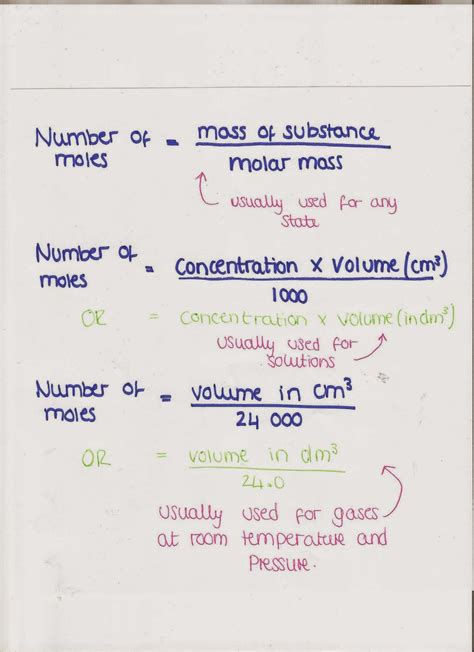 Number of = mass of substance
moles molar mass
usually used for any
state
Number of = Concentration x Volume (cm³)
moles 1000
OR = concentration x volume (in dm³)
usually used for
solutions
Number of = volume in cm³
moles 24 000
OR = volume in dm³
24.0
usually used for gases
at room temperature and
Pressure.